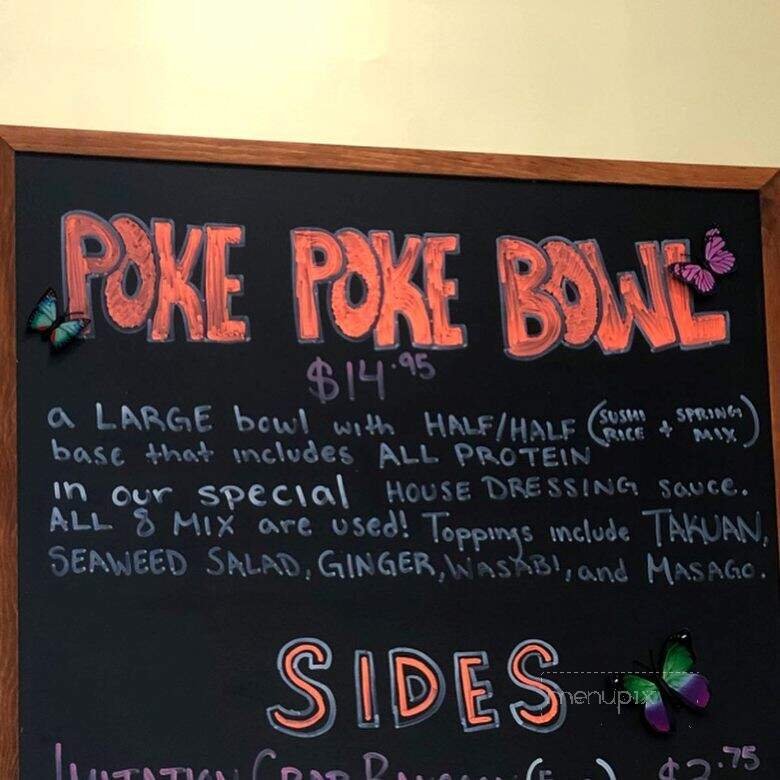 POKE POKE BOWL
$14.95
a LARGE bowl with HALF/HALF (SUSHI RICE + SPRING MIX)
base that includes ALL PROTEIN
in our special HOUSE DRESSING sauce.
ALL 8 MIX are used! Toppings include TAKUAN,
SEAWEED SALAD, GINGER, WASABI, and MASAGO.
SIDES
menupix
IMITATION CRAB $2.75